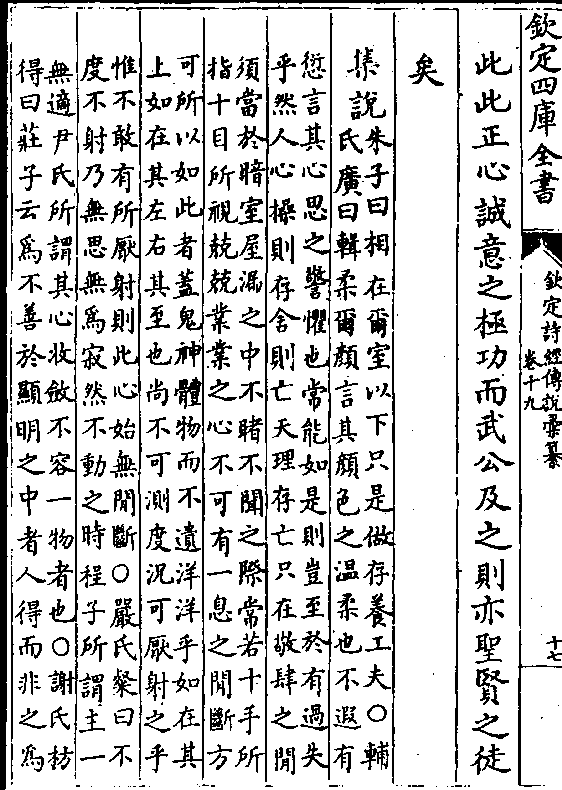 欽定四庫全書
欽定詩經傳說彙纂
卷十九
十七
此此正心誠意之極功而武公及之則亦聖賢之徒
矣
集說朱子曰相在爾室以下只是做存養工夫○輔
氏廣曰輯柔爾顔言其顔色之温柔也不遐有
愆言其心思之警懼也常能如是則豈至於有過失
乎然人心操則存舍則亡天理存亡只在敬肆之閒
須當於暗室屋漏之中不睹不聞之際常若十手所
指十目所視兢兢業業之心不可有一息之閒斷方
可所以如此者蓋鬼神體物而不遺洋洋乎如在其
上如在其左右其至也尚不可測度況可厭射之乎
惟不敢有所厭射則此心始無閒斷○嚴氏粲曰不
度不射乃無思無為寂然不動之時程子所謂主一
無適尹氏所謂其心收斂不容一物者也○謝氏枋
得曰莊子云爲不善於顯明之中者人得而非之爲